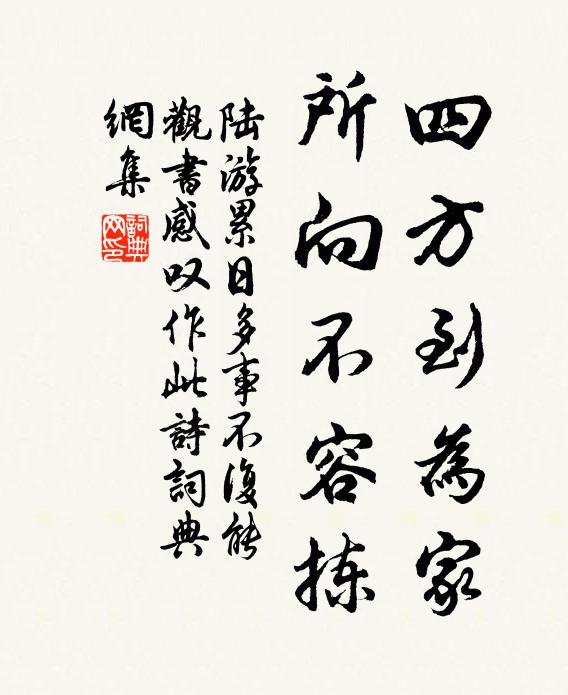 四方到為家
所向不容拣
陆游累日多事不復能
觀書感叹作此詩詞典
網集
詞典
网印